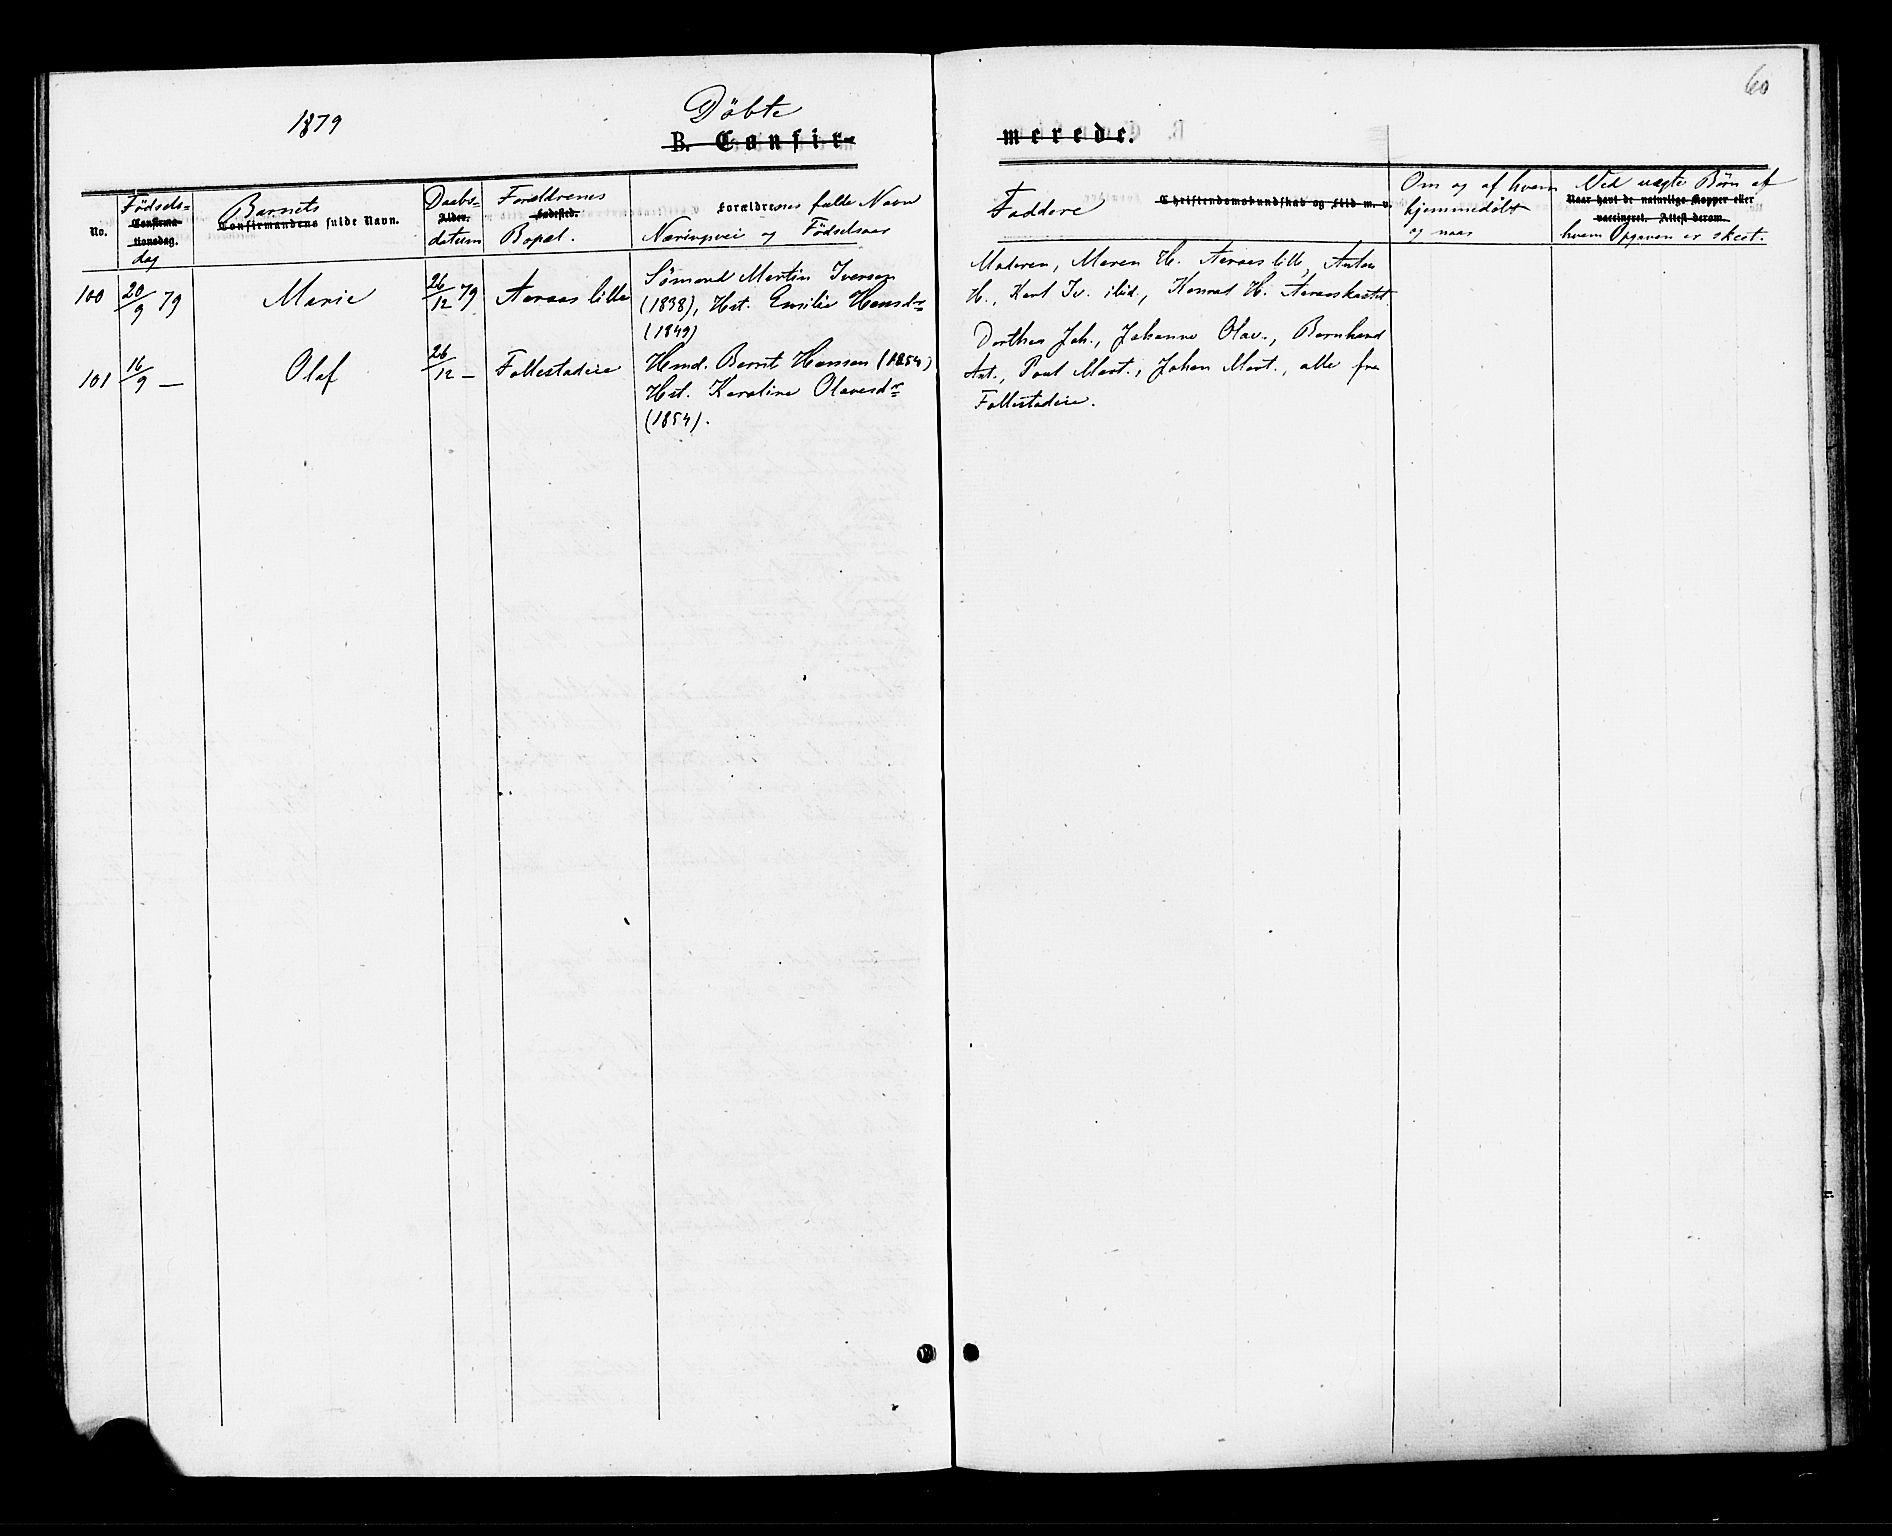 60
1879
Döbte
B. Confirmerede.
No.
Födsels-
Confirma-
tionsdag.
dag
Barnets
Confirmandens fulde Navn.
Daabs-
Alder.
datum
Foreldrenes
Födested.
Bopæl.
Forældrenes fulle Navn
Næringsvei og Födselsaar
Faddere Christendomskundskab og Flid m. v.
Om og af hvem
hjemmedöbt
og naar
Ved uægte Börn af
Naar havt de naturlige Kopper eller
vaccineret. Attest derom.
hvem Opgaven er skeet.
100 20/9 79 Marie 26/12 79 Aaraas lille
Sömand Martin Iversen
(1838), Hst. Emilie Hansdr
(1849)
Moderen, Maren H. Aaraas lille, Anton
H., Karl Iv. ibid., Konrad H.
101 16/9 — Olaf 26/12 — Follestadeie
Hmd. Bernt Hansen (1854)
Hst. Karoline Olavesdr
(1854).
Dorthea Joh., Johanne Olav., Bernhard
Ant., Paul Mart., Johan Mart., alle fra
Follestadeie.